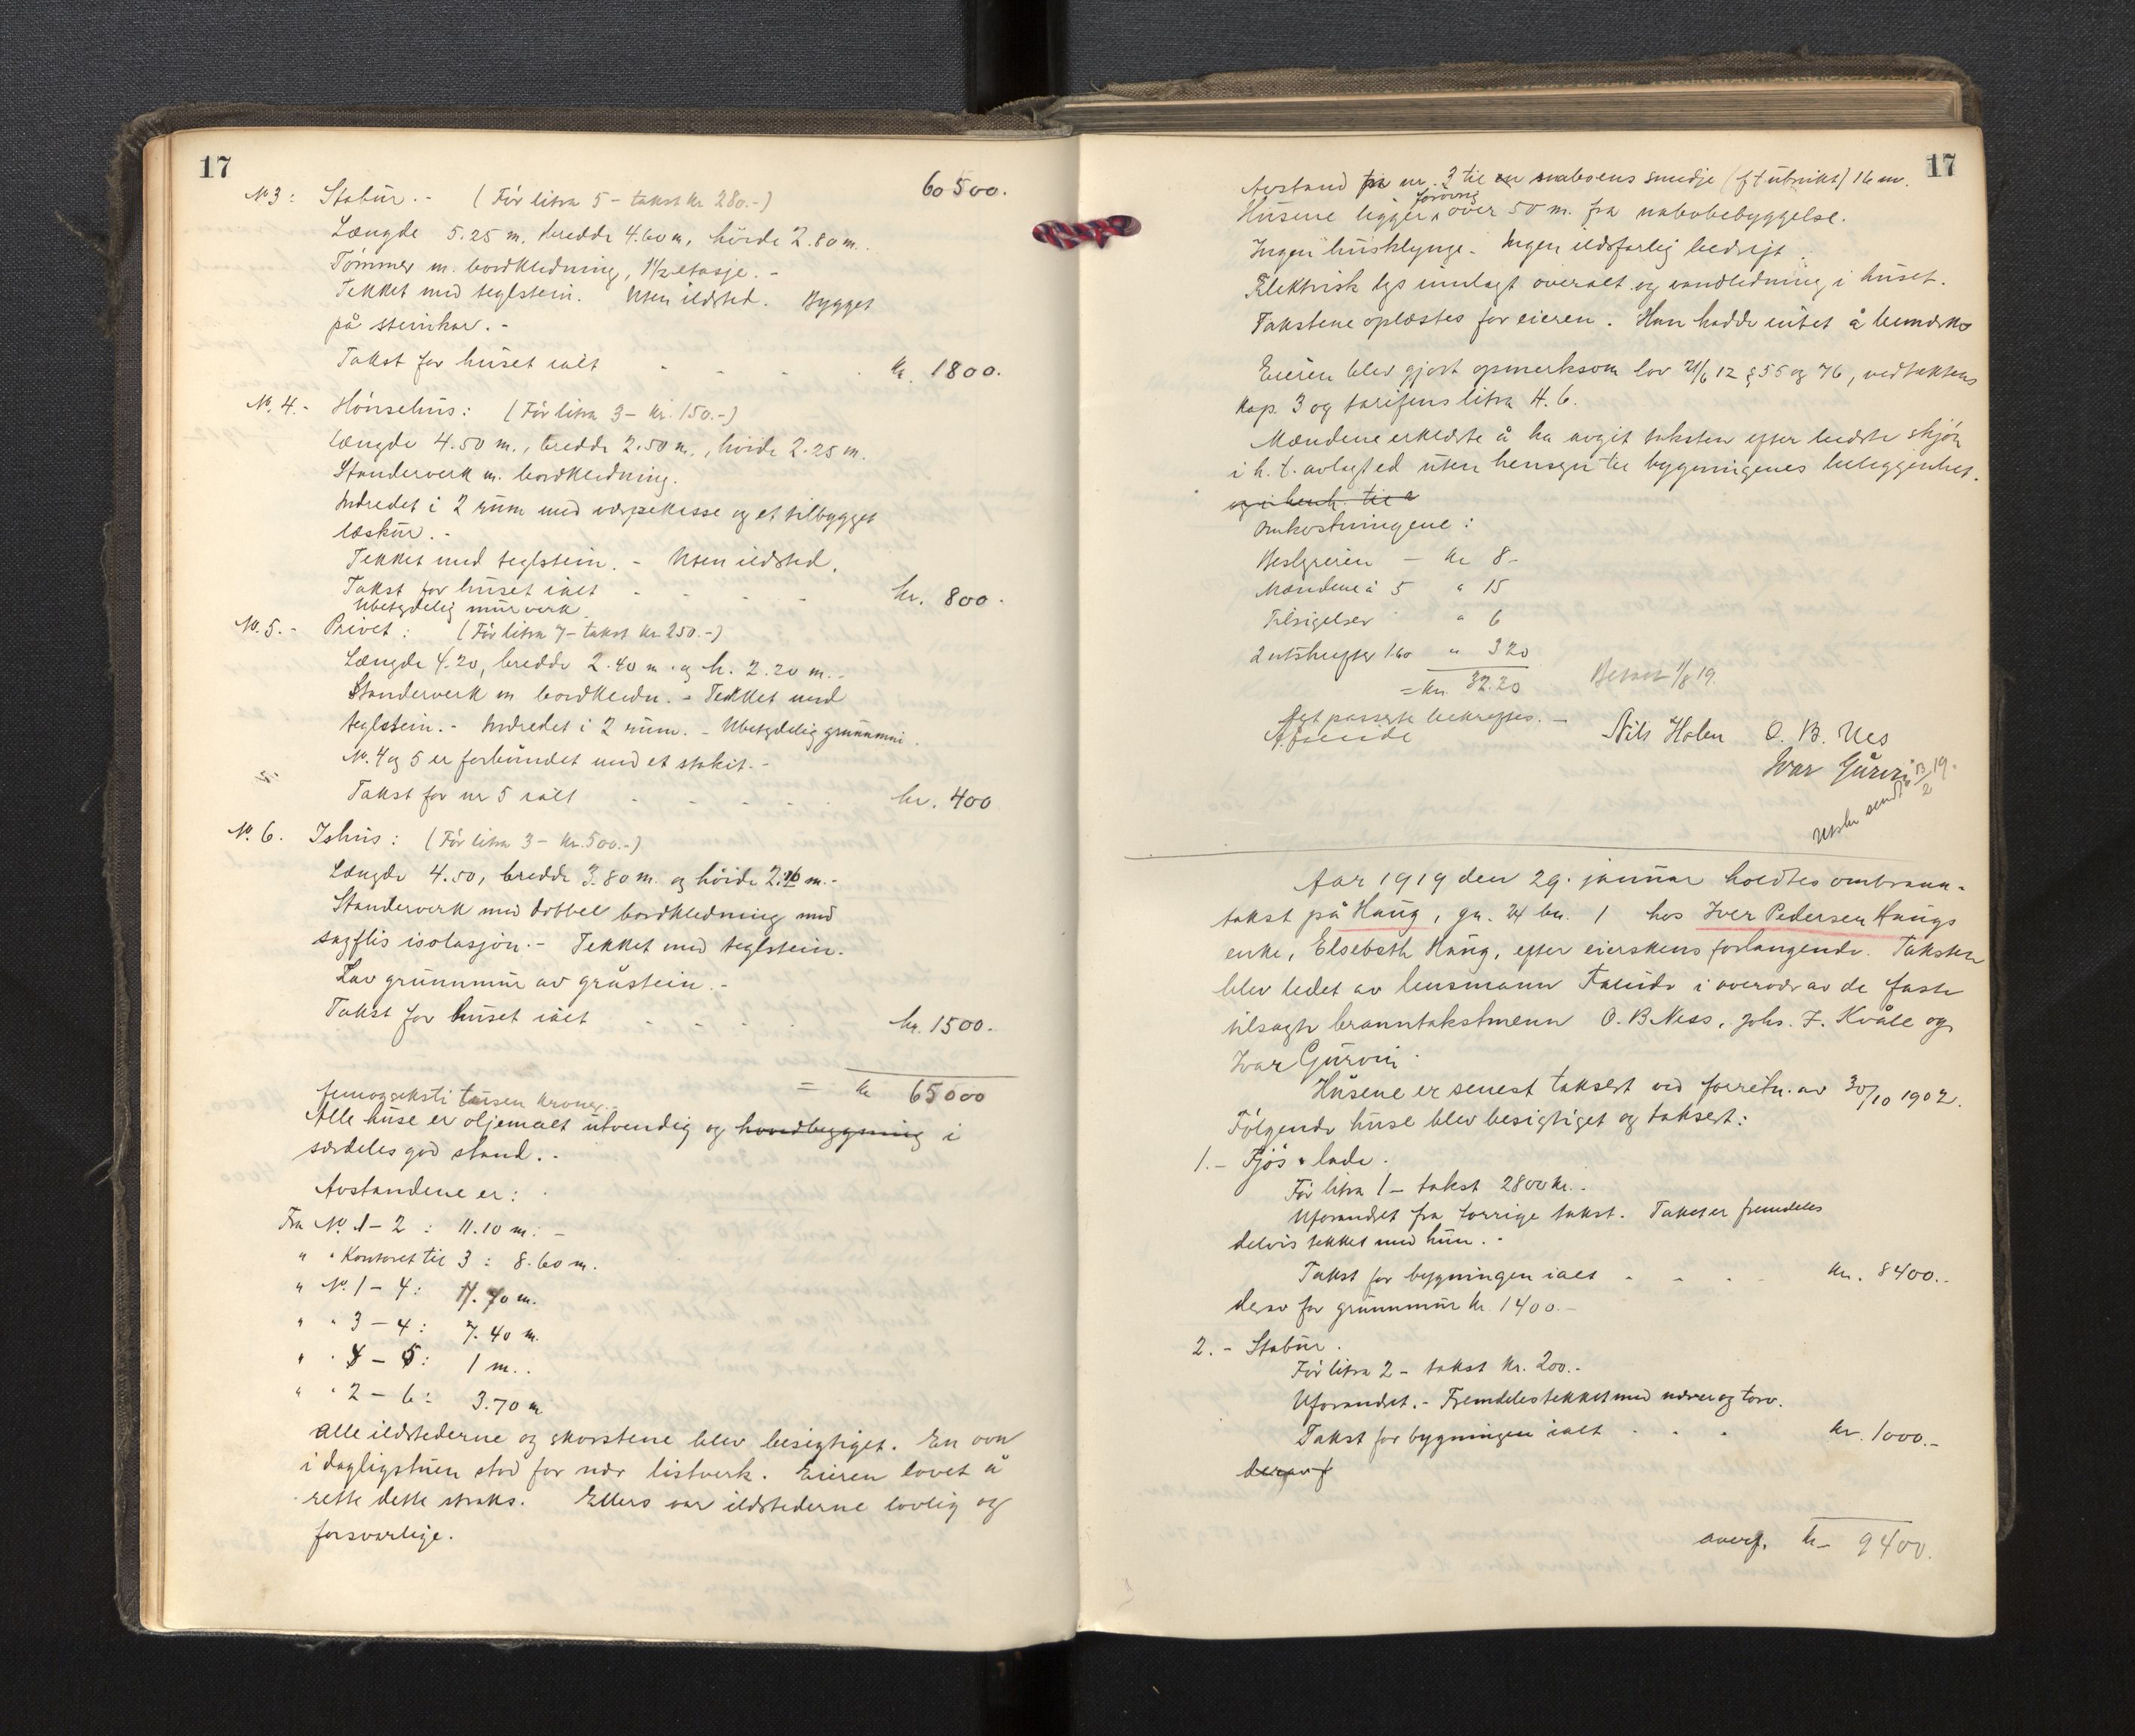 17
60 500.
No 3: Stabur. - (Før litra 5 - takst kr 280.-)
Længde 5.25 m, bredde 4.60 m, høide 2.80 m.
Tømmer m. bordkledning, 1½ etasje. -
Tekket med teglstein. Uten ildsted. Bygget
på steinkar. -
Takst for huset ialt - - - kr. 1800.
No. 4. - Hønsehus: (Før litra 3 - kr. 150.-)
længde 4.50 m., bredde 2.50 m., høide 2.25 m.
Standerverk m. bordkledning.
Indredet i 2 rum med værpekasse og et tilbygget
løskur. -
Tekket med teglstein. - Uten ildsted.
Takst for huset ialt - - - kr. 800.
Ubetydelig murverk
No. 5. - Privet: (Før litra 7 - takst kr 250.-)
Længde 4.20, bredde 2.40 m. og h. 2.20 m. -
Standerverk m bordkledn. - Tekket med
teglstein. - Indredet i 2 rum. - Ubetydelig grunnmur.
No. 4 og 5 er forbundet med et stakit. -
Takst for nr 5 ialt - - - kr. 400
No. 6. Ishus: (Før litra 3 - kr. 500.-)
Længde 4.50, bredde 3.80 m. og høide 2. m. -
Standerverk med dobbel bordkledning med
sagflis isolasjon. - Tekket med teglstein.
Lav grunnmur av gråstein. -
Takst for huset ialt - - - kr. 1500.
= kr 65000
femogseksti tusen kroner. -
Alle huse er oljemalt utvendig og hovedbygning i
særdeles god stand. -
Avstandene er:
Fra No. 1 - 2 : 11.10 m. -
" " Kontoret til 3 : 8.60 m.
" No. 1 - 4: 11.70 m.
" " 3 - 4: 7.40 m.
" " 4 - 5: 1 m..
" " 2 - 6: 3.70 m
Alle ildstederne og skorstene blev besigtiget. En ovn
i dagligstuen stod for nær listverk. Eieren lovet å
rette dette straks. Ellers var ildstederne lovlig og
forsvarlige.
17
Avstand fra nr. 3 til en naboens smedje (ft utrukt) 16 m.
Husene ligger forøvrig over 50 m. fra nabobebyggelse.
Ingen husklynge. Ingen ildsfarlig bedrift.
Elektrisk lys innlagt overalt og vandledning i huset.
Takstene oplæstes for eieren. Han hadde intet å bemærke
Eieren blev gjort opmerksom lov 21/6 12 § 55 og 76, vedtektens
kap. 3 og tarifens litra H. 6.
Mændene erklærte å ha avgit taksten efter bedste skjøn
i h. t. avlagt ed uten hensyn til bygningenes beleggenhet.
og i henh. til
Omkostningene:
Bestyreren - kr 8 -
Mændene á 5 " 15
Tilsigelser " 6
2 utskrifter 1.60 " 3 20
= kr. 32.20 Betalt 1/8 19.
Det passerte bekreftes. -
Nils Holen O. B. Ness
Ivar Gurvin
Utskr. sendt 13/2 19.
Aar 1919 den 29. januar holdtes ombrann-
takst på Haug, gn. 24 bn. 1 hos Iver Pedersen Haugs
enke, Elsebeth Haug, efter eierskens forlangende. Taksten
blev ledet av lensmann i overvær av de faste
tilsagte branntakstmenn O. B. Ness, Johs. J. Kvåle og
Ivar Gurvin.
Husene er senest taksert ved forretn. av 30/10 1902.
Følgende huse blev besigtiget og taksert:
1. - Fjøs & lade.
Før litra 1 - takst 2800 kr. -
Uforandret fra forrige takst. Taket er fremdeles
delvis tekket med hun. -
Takst for bygningen ialt - - - kr. 8400. -
Derav for grunnmur kr. 1400. -
2. - Stabur.
Før litra 2 - takst kr. 200. -
Uforandret. - Fremdeles tekket med næver og torv.
Takst for bygningen ialt - - - kr. 1000. -
derav f
overf. kr - 9400.